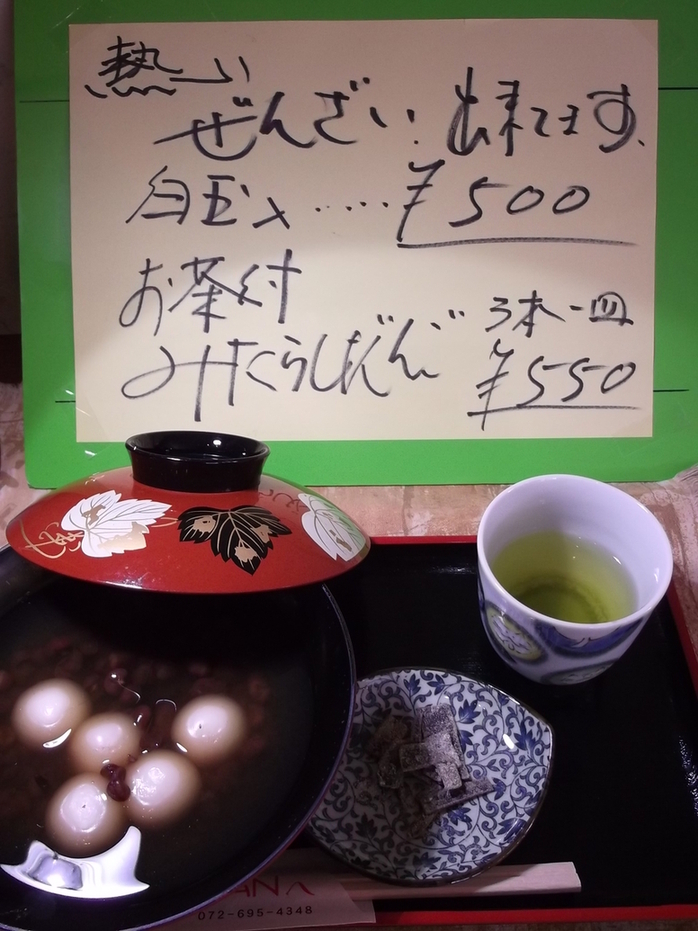 熱ーい
ぜんざい出来てます、
白玉入.....¥500
お茶付
みたらしだんご 3本一皿
¥550
072-695-4348